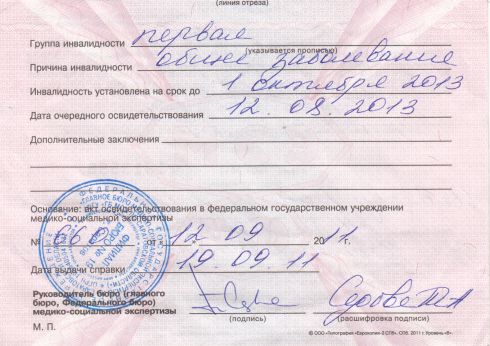 (линия отреза)
Группа инвалидности первая
(указывается прописью)
Причина инвалидности общее заболевание
Инвалидность установлена на срок до 1 октября 2013
Дата очередного освидетельствования 12.08.2013
Дополнительные заключения
Основание: акт освидетельствования в федеральном государственном учреждении
медико-социальной экспертизы
№ от 12 09 2011 г.
Дата выдачи справки 19.09.11
Руководитель бюро (главного
бюро, Федерального бюро)
медико-социальной экспертизы
(подпись) (расшифровка подписи)
М. П.
© ООО «Типография «Еврокопия-2 СПб», СПб, 2011 г. Уровень «В».